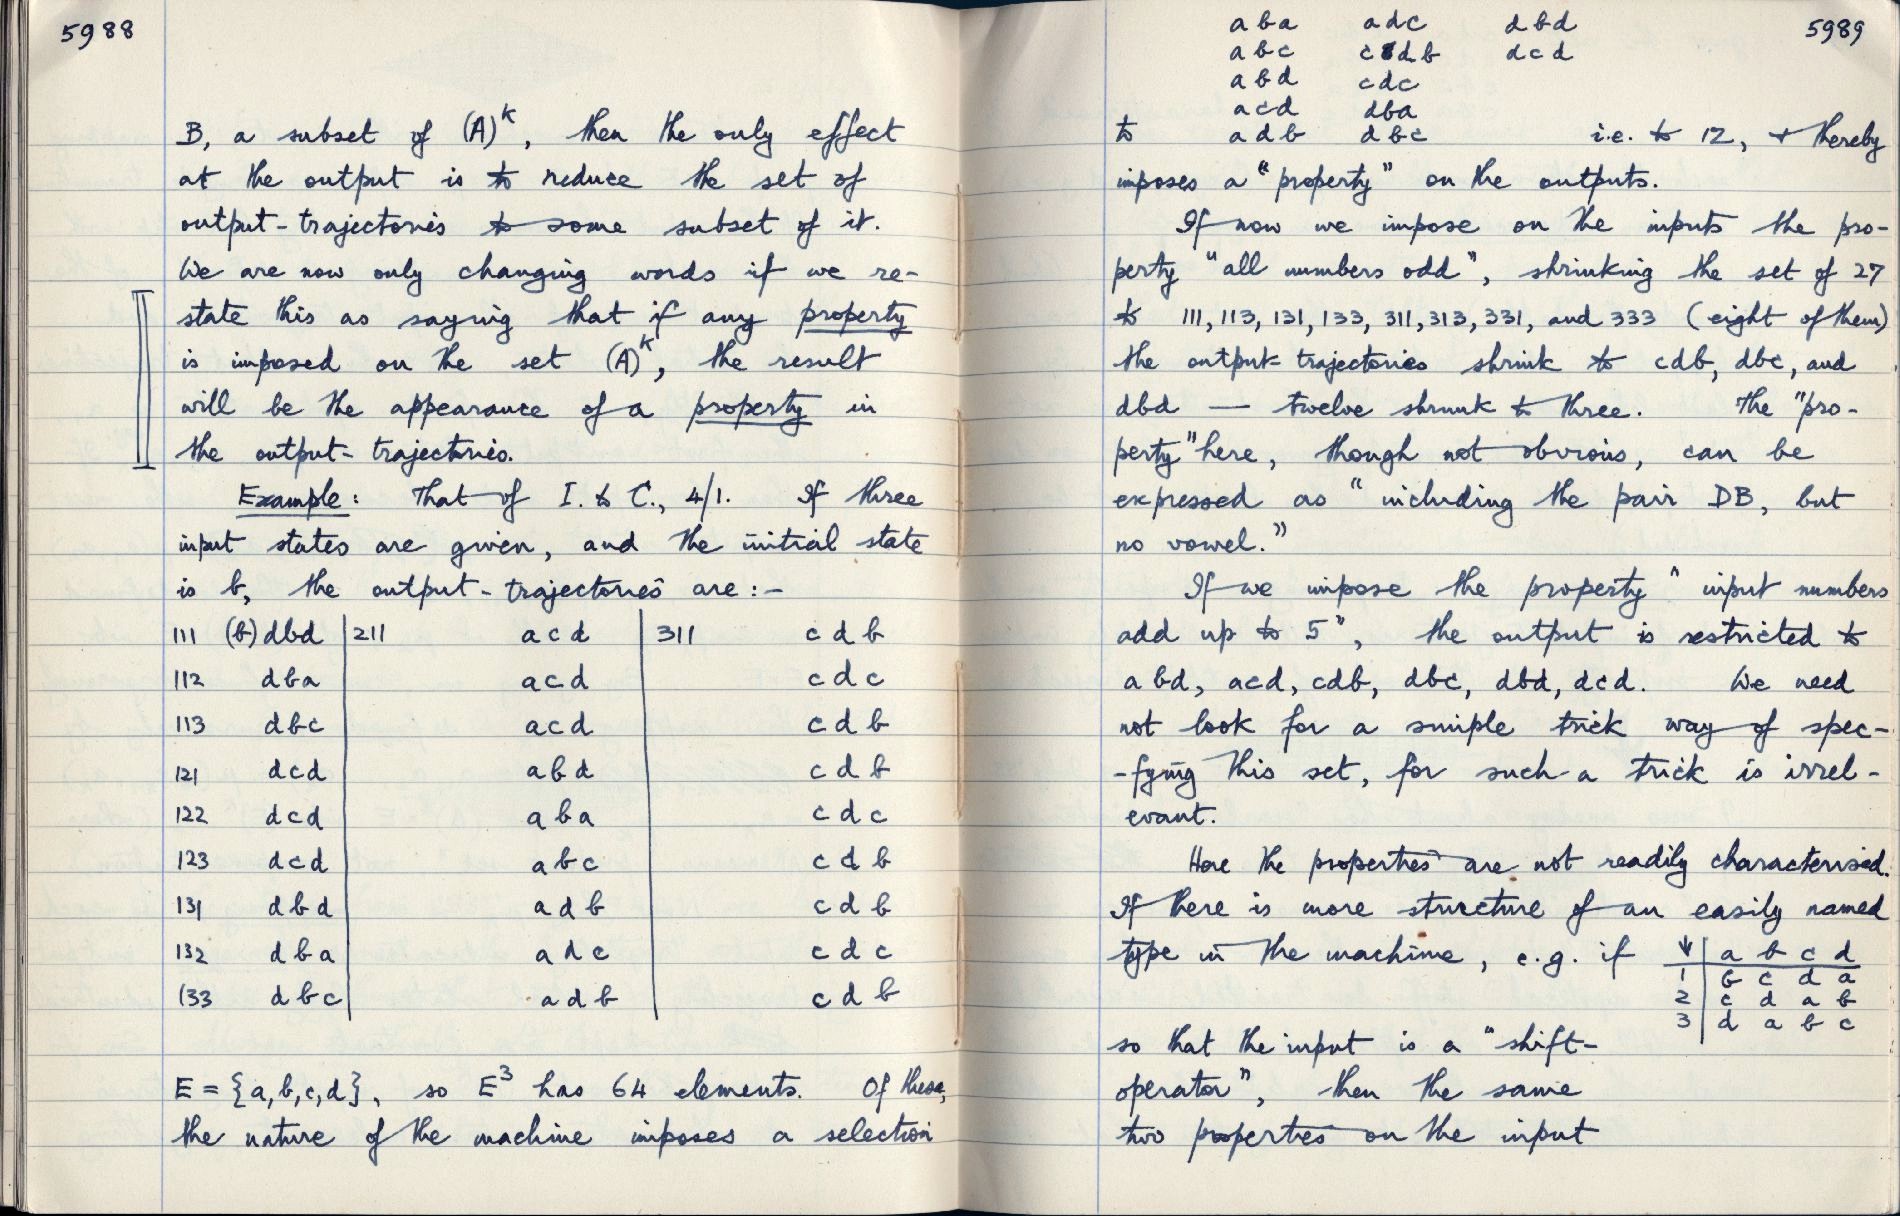 5988
B, a subset of (A)^K, then the only effect
at the output is to reduce the set of
output-trajectories to some subset of it.
We are now only changing words if we re-
state this as saying that if any property
is imposed on the set (A)^K, the result
will be the appearance of a property in
the output-trajectories.
Example: That of I. to C., 4/1. If three
input states are given, and the initial state
is b, the output-trajectories are :-
111 (b) dbd | 211 acd | 311 cdb
112 dba acd cdc
113 dbc acd cdb
121 dcd abd cdb
122 dcd aba cdc
123 dcd abc cdb
131 dbd adb cdb
132 dba adc cdc
133 dbc adb cdb
E = {a,b,c,d}, so E³ has 64 elements. Of these,
the nature of the machine imposes a selection
5989
aba adc dbd
abc cdb dcd
abd cdc
acd dba
to adb dbc i.e. to 12, + thereby
imposes a "property" on the outputs.
If now we impose on the inputs the pro-
perty "all numbers odd", shrinking the set of 27
to 111, 113, 131, 133, 311, 313, 331, and 333 (eight of them)
the output-trajectories shrink to cdb, dbc, and
dbd — twelve shrunk to three. The "pro-
perty" here, though not obvious, can be
expressed as "including the pair DB, but
no vowel."
If we impose the property "input numbers
add up to 5", the output is restricted to
abd, acd, cdb, dbc, dbd, dcd. We need
not look for a simple trick way of spec-
-fying this set, for such a trick is irrel-
evant.
Here the properties are not readily characterised.
If there is more structure of an easily named
type in the machine, e.g. if ↓ | a b c d
1 | b c d a
2 | c d a b
3 | d a b c
so that the input is a "shift-
operator", then the same
two properties on the input